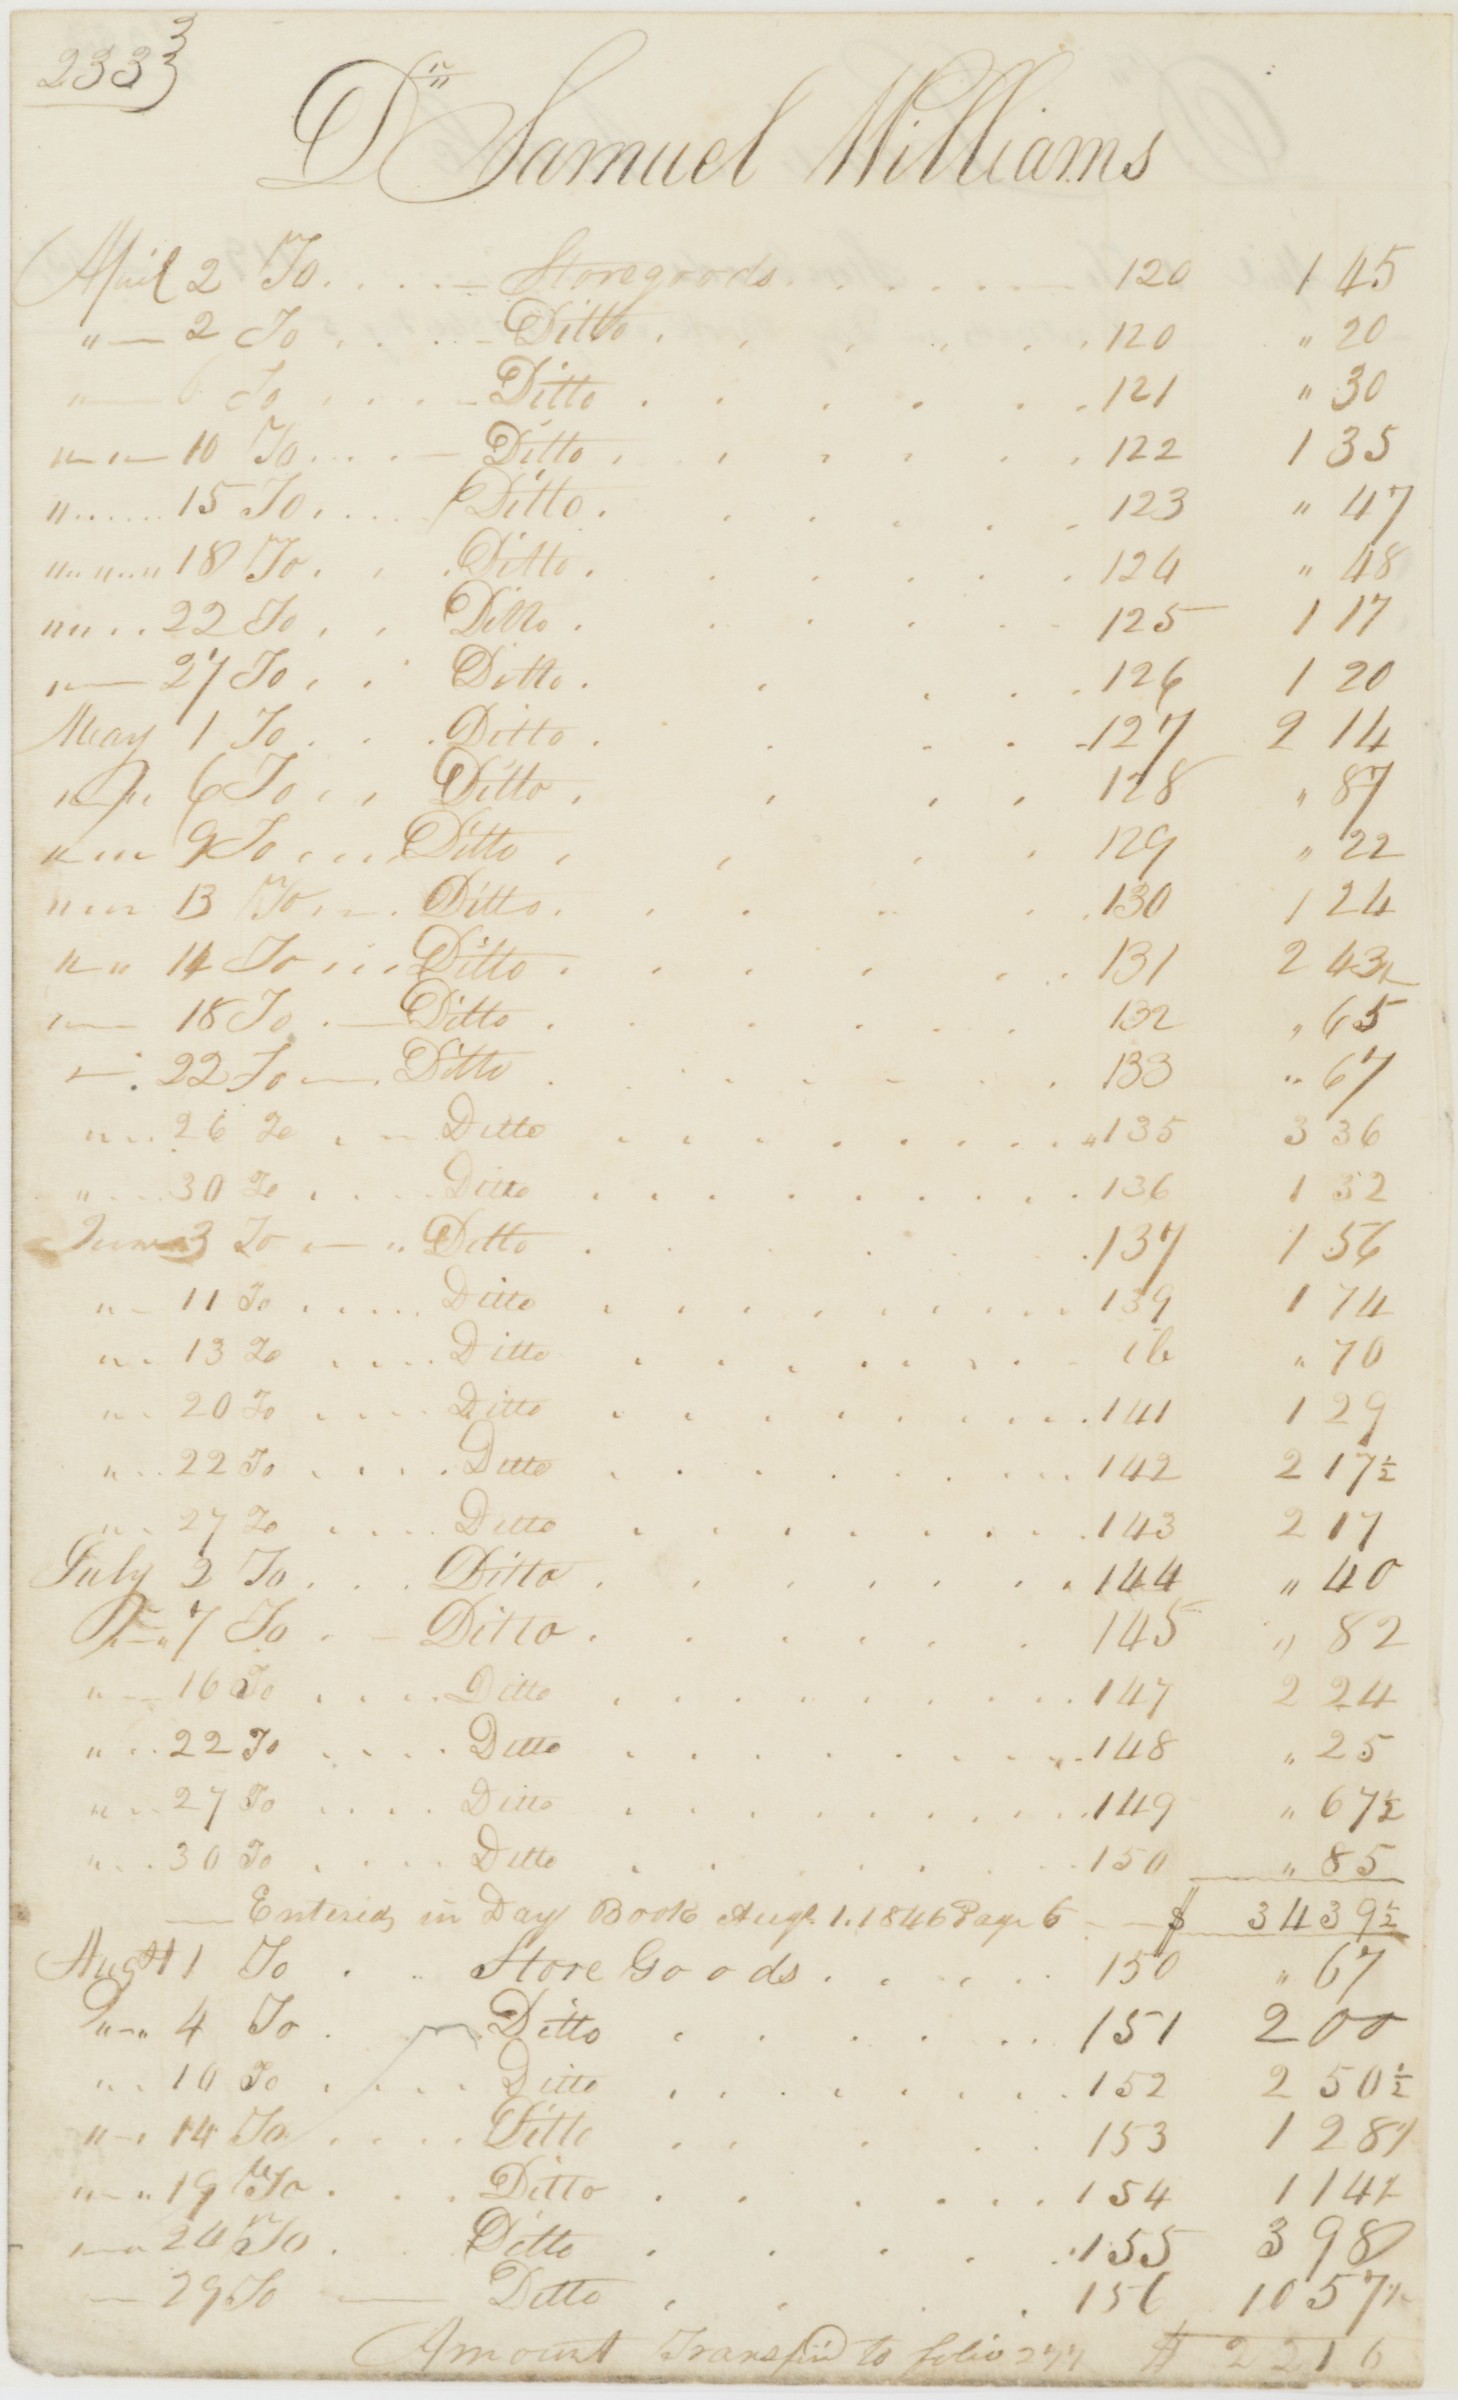 233 3/3
Dr Samuel Williams
April 2 To . . . . — Storegoods . . . . . . . 120 1 45
" — 2 To . . . . — Ditto . . . . . . 120 " 20
" — 6 To . . . . — Ditto . . . . . . 121 " 30
" — " — 10 To . . . . — Ditto . . . . . . 122 1 35
" . . . . . 15 To . . . . Ditto . . . . . . 123 " 47
" . . " . . " 18 To . . . Ditto . . . . . . 124 " 48
" " . . 22 To . . Ditto . . . . . . 125 1 17
" — 27 To . . . Ditto . . . . . 126 1 20
May 1 To . . . Ditto . . . . . 127 2 14
" — " 6 To . . . Ditto . . . . . 128 " 87
" — " 9 To . . . Ditto . . . . 129 " 22
" " — 13 To . . . Ditto . . . . . 130 1 24
" — " 14 To . . . Ditto . . . . . . 131 2 43½
" — 18 To . — Ditto . . . . . . 132 " 65
" — . 22 To — . Ditto . . . . . . 133 " 67
" . . . 26 To . — Ditto . . . . . . . . . 135 3 36
" . . . 30 To . . . . Ditto . . . . . . . . . 136 1 32
June 3 To . — " Ditto . . . . . 137 1 56
" — 11 To . . . . . Ditto . . . . . . . . . 139 1 74
" . . 13 To . . . . Ditto . . . . . . . . ib " 70
" . . 20 To . . . . Ditto . . . . . . . . . 141 1 29
" . . 22 To . . . . Ditto . . . . . . . . . 142 2 17½
" . . 27 To . . . . Ditto . . . . . . . . . 143 2 17
July 2 To . . . Ditto . . . . . . . . 144 " 40
" — " 7 To . — Ditto . . . . . . 145 " 82
" — — 16 To . . . . Ditto . . . . . . . . . 147 2 24
" . . 22 To . . . . Ditto . . . . . . . . . 148 " 25
" . . 27 To . . . . Ditto . . . . . . . . . 149 " 67½
" . . . 30 To . . . . Ditto . . . . . . . 150 " 85
— Entered, in Day Book Augt. 1. 1846 Page 6 — — $ 34 39½
Augst 1 To . . Store Goods . . . . . 150 " 67
" — " 4 To . Ditto . . . . . . . 151 2 00
" . . 10 To . . . . Ditto . . . . . . . . 152 2 50½
" — . 14 To . . . . Ditto . . . . . 153 1 28½
" — " 19 To . . . Ditto . . . . . . 154 1 14½
" — " 24 To . . Ditto . . . . . 155 3 98
— 29 To — Ditto . . . . 156 10 57½
Amount Transfd to folio 277 $ 22 16